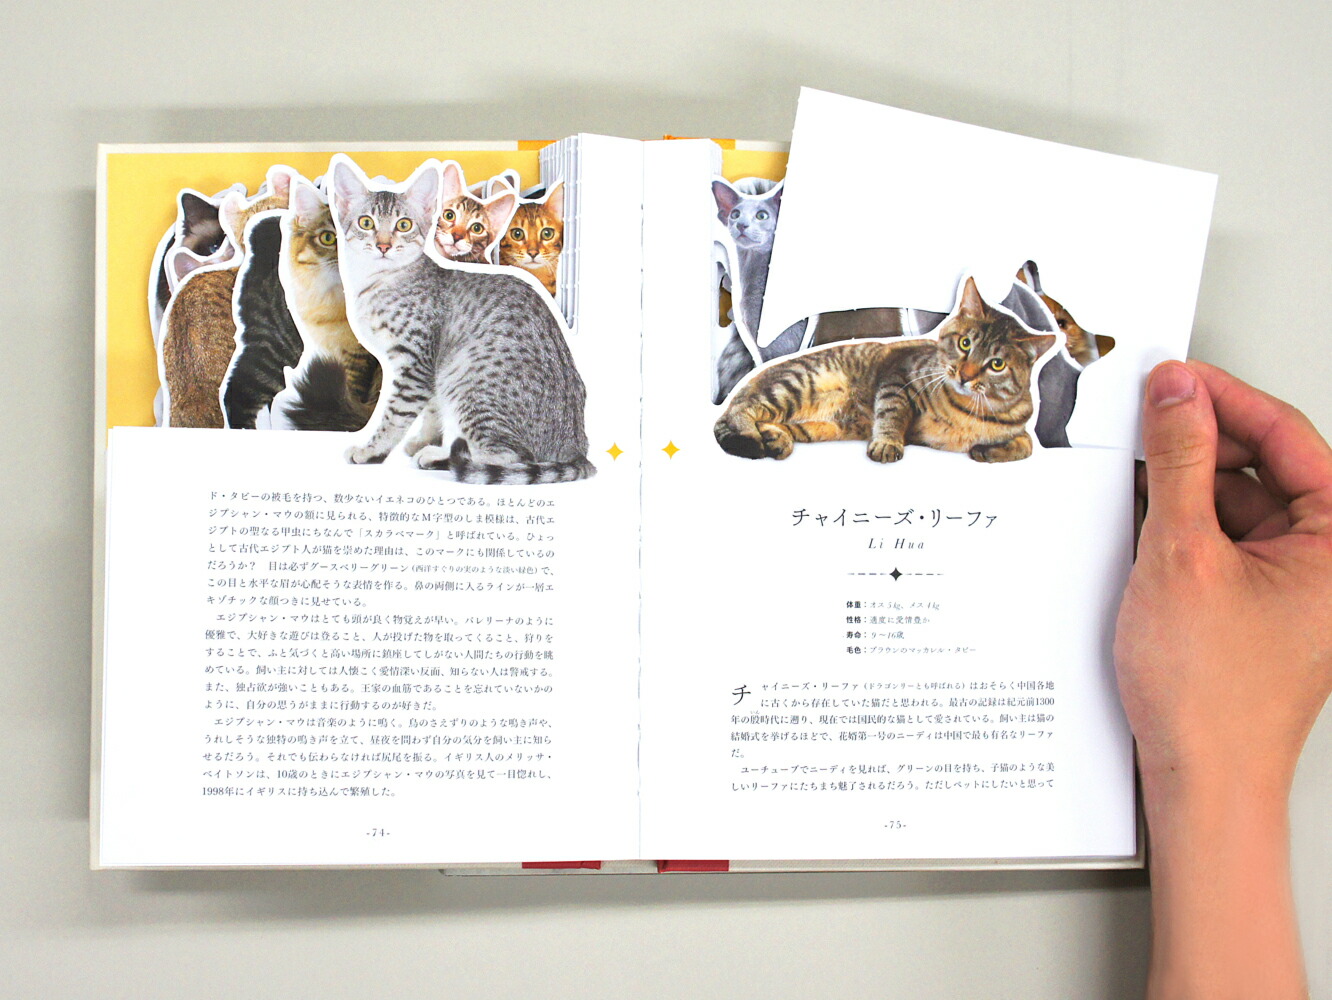 ド・タビーの被毛を持つ、数少ないイエネコのひとつである。ほとんどのエ
ジプシャン・マウの額に見られる、特徴的なM字型のしま模様は、古代エ
ジプトの聖なる甲虫にちなんで「スカラベマーク」と呼ばれている。ひょっ
として古代エジプト人が猫を崇めた理由は、このマークにも関係しているの
だろうか？　目は必ずグースベリーグリーン（西洋すぐりの実のような淡い緑色）で、
この目と水平な眉が心配そうな表情を作る。鼻の両側に入るラインが一層エ
キゾチックな顔つきに見せている。
エジプシャン・マウはとても頭が良く物覚えが早い。バレリーナのように
優雅で、大好きな遊びは登ること、人が投げた物を取ってくること、狩りを
することで、ふと気づくと高い場所に鎮座してしがない人間たちの行動を眺
めている。飼い主に対しては人懐こく愛情深い反面、知らない人は警戒する。
また、独占欲が強いこともある。王家の血筋であることを忘れていないかの
ように、自分の思うがままに行動するのが好きだ。
エジプシャン・マウは音楽のように鳴く。鳥のさえずりのような鳴き声や、
うれしそうな独特の鳴き声を立て、昼夜を問わず自分の気分を飼い主に知ら
せるだろう。それでも伝わらなければ尻尾を振る。イギリス人のメリッサ・
ベイトソンは、10歳のときにエジプシャン・マウの写真を見て一目惚れし、
1998年にイギリスに持ち込んで繁殖した。
-74-
チャイニーズ・リーファ
Li Hua
体重：オス5kg、メス4kg
性格：適度に愛情豊か
寿命：9〜16歳
毛色：ブラウンのマッカレル・タビー
チャイニーズ・リーファ（ドラゴンリーとも呼ばれる）はおそらく中国各地
に古くから存在していた猫だと思われる。最古の記録は紀元前1300
年の殷時代に遡り、現在では国民的な猫として愛されている。飼い主は猫の
結婚式を挙げるほどで、花婿第一号のニーディは中国で最も有名なリーファ
だ。
ユーチューブでニーディを見れば、グリーンの目を持ち、子猫のような美
しいリーファにたちまち魅了されるだろう。ただしペットにしたいと思って
-75-